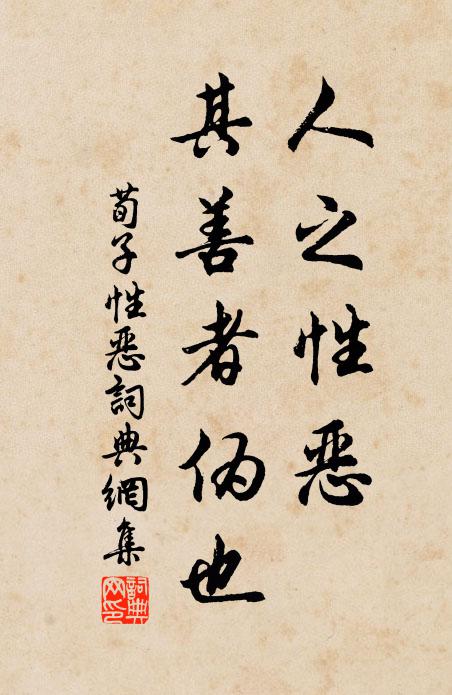 人之性恶
其善者伪也
荀子性恶詞典網集
詞典网印